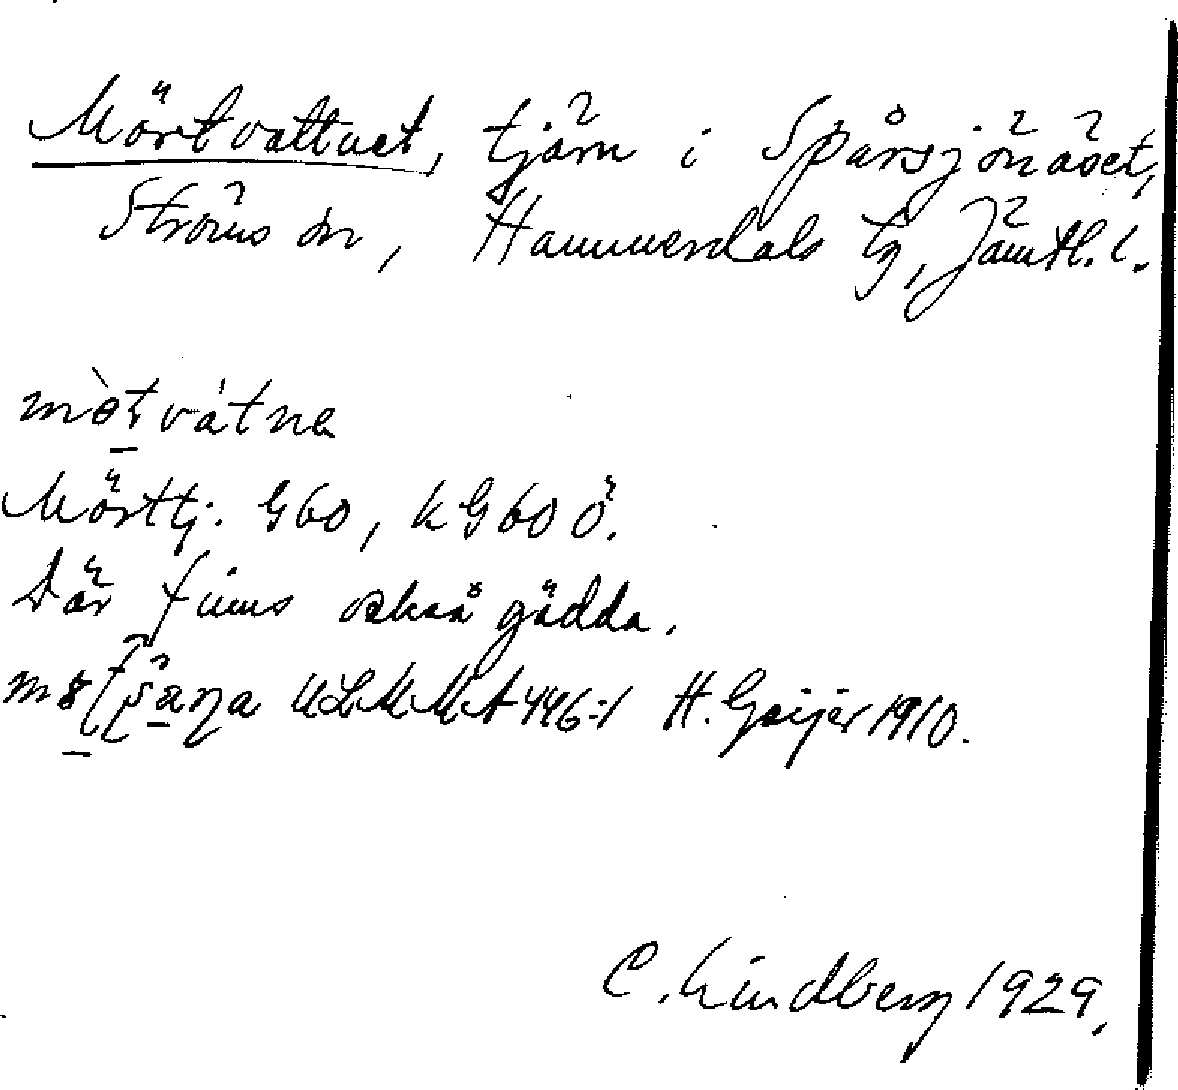 Mörtvattnet, tjärn i Spårsjönäset,
Ströms sn, Hammerdals tg, Jämtl. l.
mòtvátnə
Mörttj. G60, kG60Ö.
Där finns också gädda.
ULMA 446:1 H. Geijer 1910.
C. Lindberg 1929.